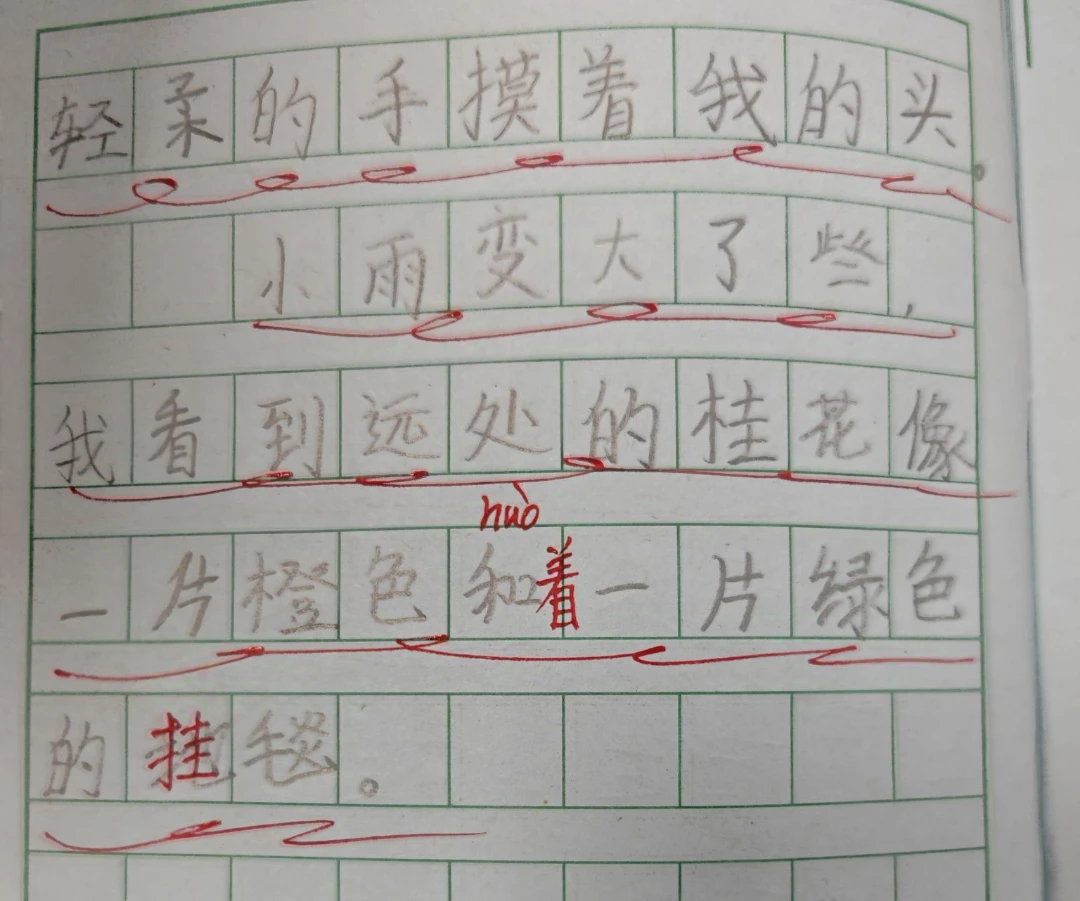 轻柔的手摸着我的头。
小雨变大了些，
我看到远处的桂花像
huò
一片橙色和着一片绿色
的挂毯。